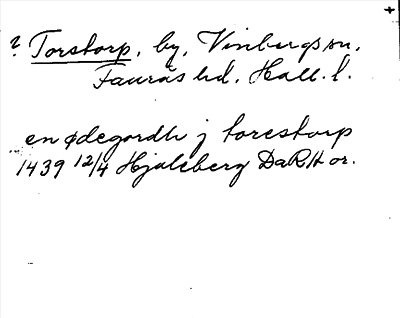 ? Torstorp, by, Vinbergs sn,
Faurås hd, Hall. l.
en ødegordh j torestorp
1439 12/4 Hjalsberg DaRH or.